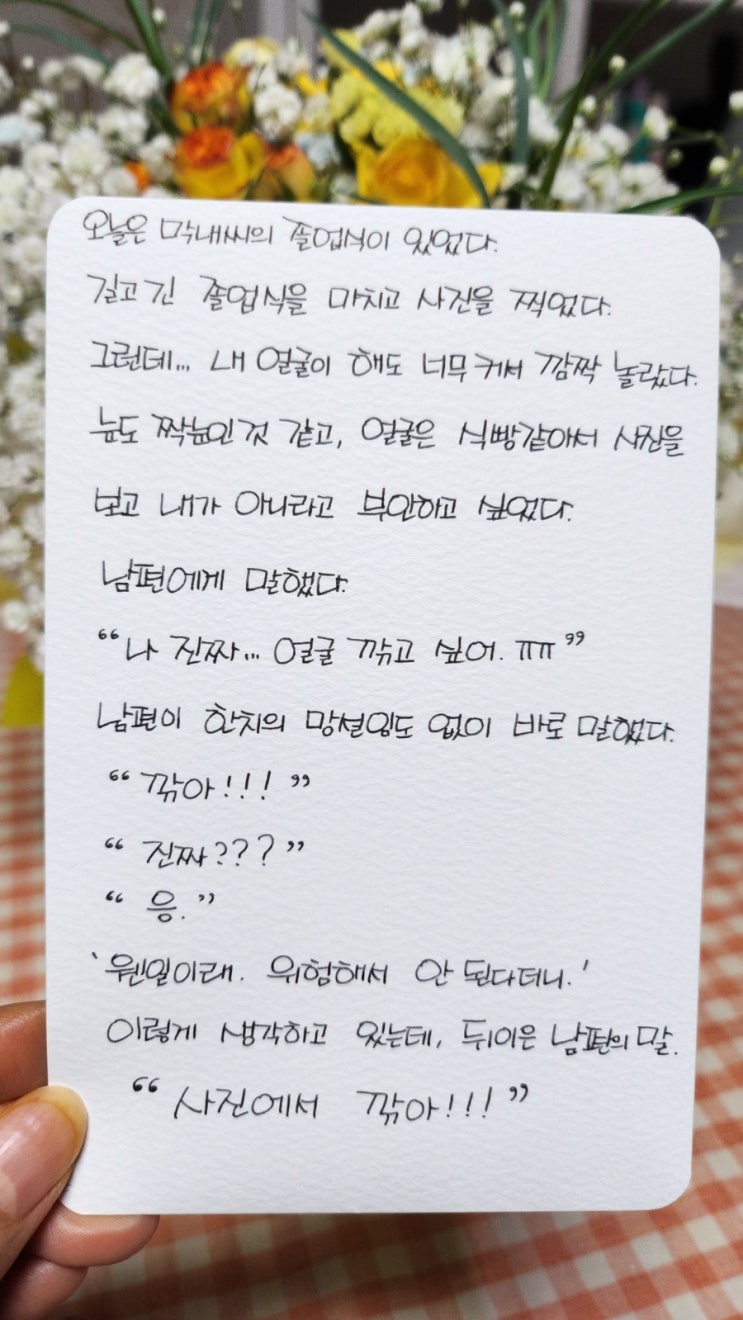 오늘은 막내씨의 졸업식이 있었다.
길고 긴 졸업식을 마치고 사진을 찍었다.
그런데... 내 얼굴이 해도 너무 커서 깜짝 놀랐다.
눈도 짝눈인것 같고, 얼굴은 식빵같아서 사진을
보고 내가 아니라고 부인하고 싶었다.
남편에게 말했다.
“나 진짜... 얼굴 깎고 싶어. ㅠㅠ”
남편이 한치의 망설임도 없이 바로 말했다.
“깎아!!!”
“진짜???”
“응.”
‘웬일이래. 위험해서 안 된다더니.’
이렇게 생각하고 있는데, 뒤이은 남편의 말.
“사진에서 깎아!!!”